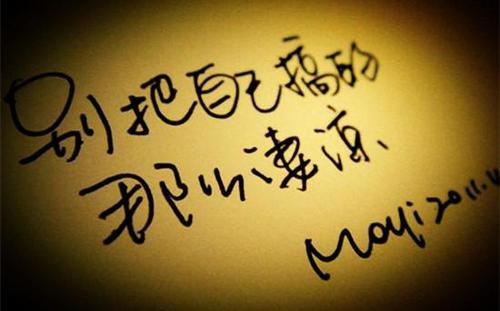 别把自己搞的
那么凄凉、
Mayi 2011.11